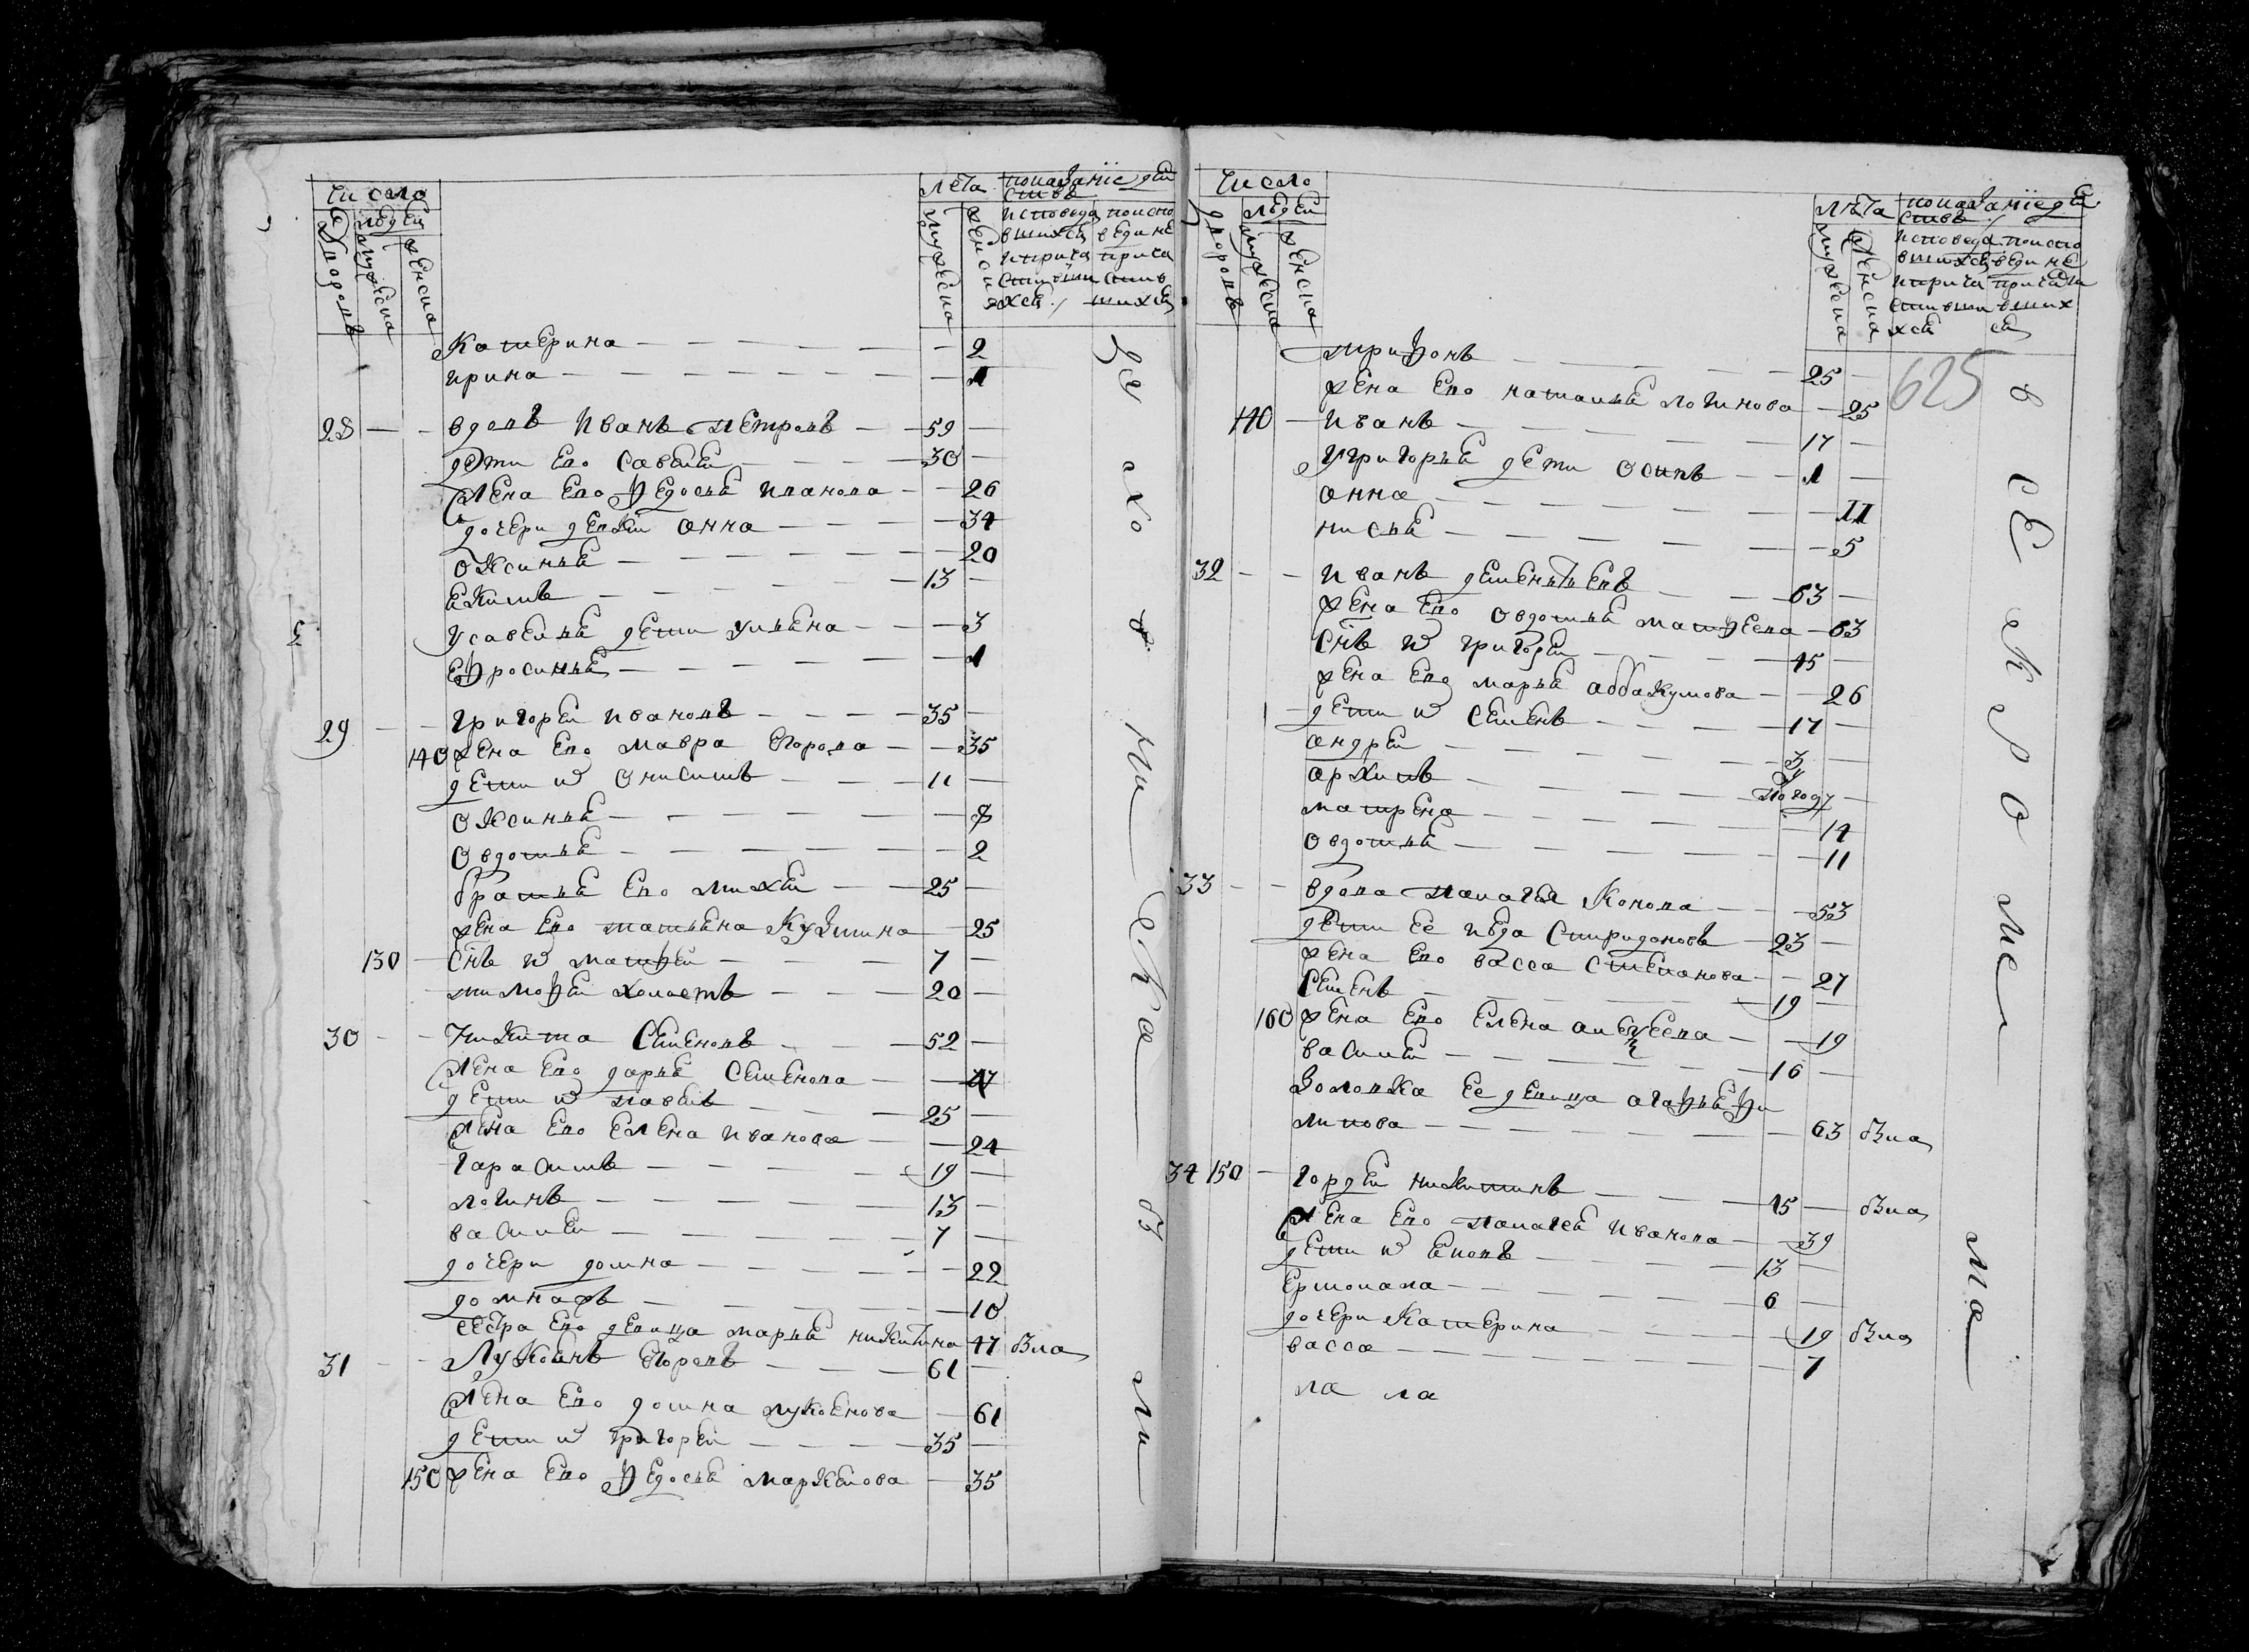 Число
людей
дворовъ
мужеска
женска
лета
показание дей
ствъ
мужеска
женска
исповеда
вшихся
и прича
стивши
хся
по исно
ведине
прича
стив
шихся
Катерина 2
ирина 1
28 вдовъ Иванъ Петровъ 59
дети его Савелей 30
жена его Федосья иванова 26
дочери девки Анна 34
оксинья 20
Екимъ 13
У савелья дети ульяна 3
ефросинья 1
29 григорей ивановъ 35
140 жена его мавра егорова 35
дети их онисимъ 11
оксинья 8
овдотья 2
братья его михей 25
жена его татьяна Кузмина 25
130 снъ их матфей 7
тимофей холостъ 20
30 Никита Семеновъ 52
жена его дарья Семенова 47
дети их павелъ 25
жена его Елена иванова 24
гарасимъ 19
логинъ 13
василей 7
дочери домна 22
10
сестра его девица марья никитина 47 бы
31 Лукоянъ егоровъ 61
жена его домна лукоянова 61
дети их григорей 35
150 жена его Федосья маркелова 35
Число
дворовъ
людей
мужеска
женска
лѣта
показание де
ствъ
мужеска
женска
исповеда
вшихся
и прича
стивши
хся
по исно
ведине
причаст
вших
ся
625
трифонъ 25
жена его наталья логинова 25
140 иванъ 17
У григорья дети осипъ 1
анна 11
5
32 иванъ дементьевъ 63
жена его овдотья матфеева 63
снъ их григорей 45
жена его марья аббакумова 26
дети их семенъ 17
андрей 3
архипъ погоду
матрена 14
овдотья 11
33 вдова палагея Конова 53
дети ее Спиридоновъ 23
жена его васса степанова 27
семенъ 19
160 жена его Елена алексеева 19
василей 16
золовка ее девица агафья фи
липова 63 была
34 150 гордей никитинъ 45 была
жена его палагея иванова 39
дети их 13
ермолала 6
дочери Катерина 19 была
васса 7